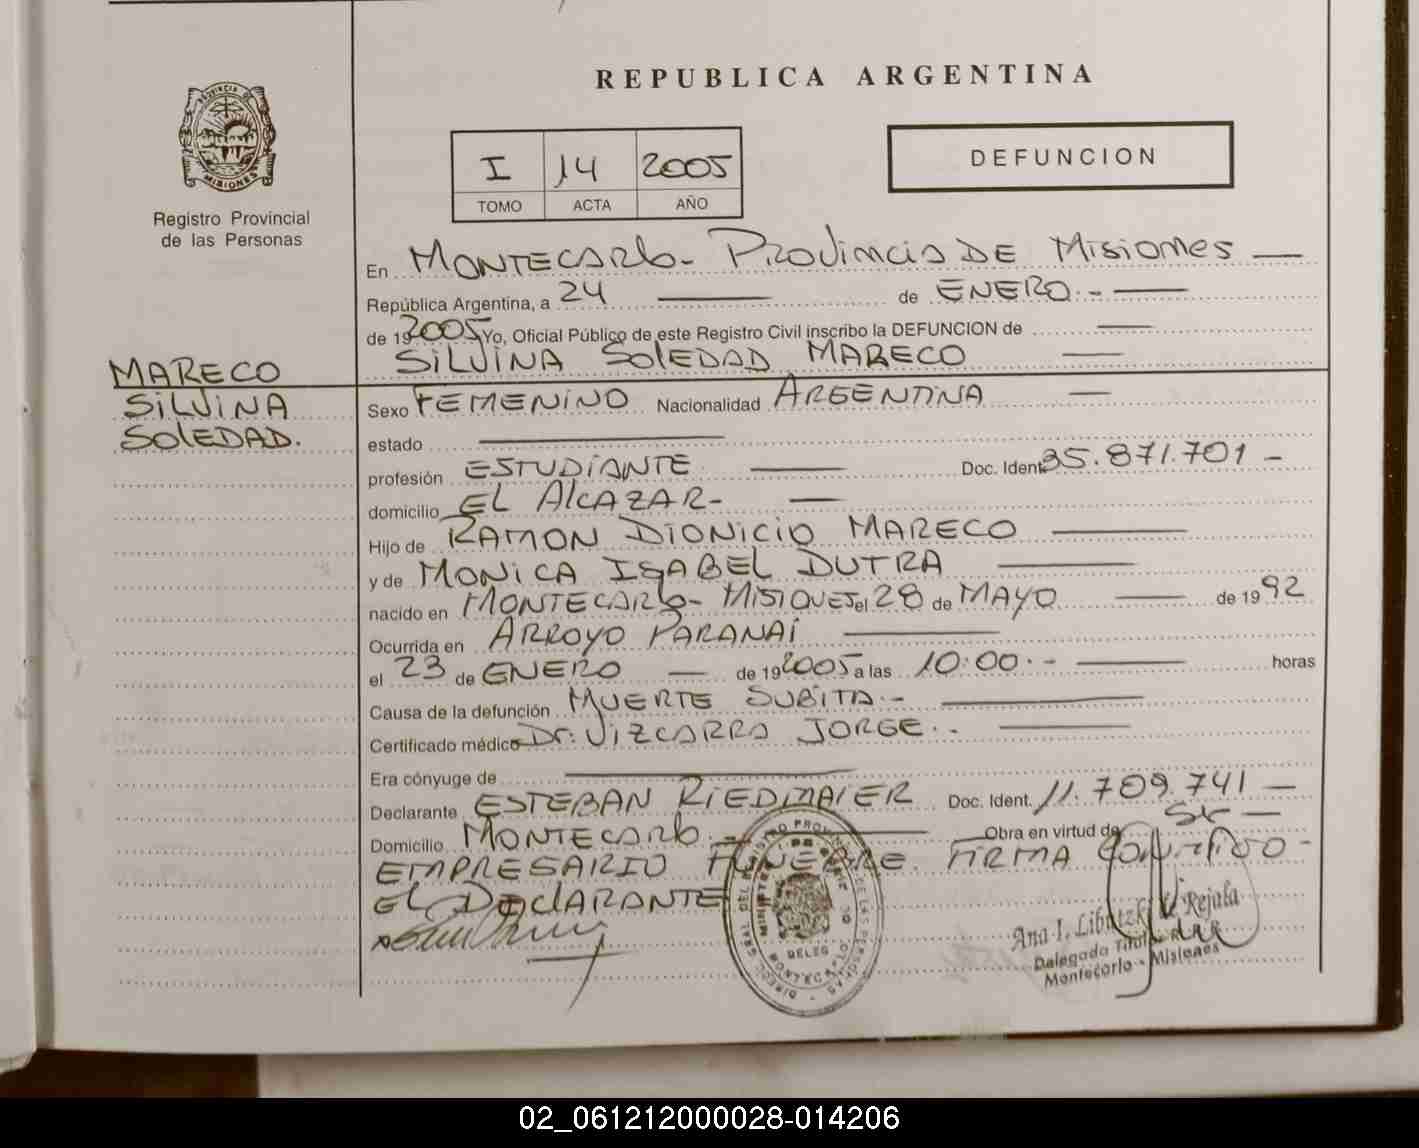 REPUBLICA ARGENTINA
PROVINCIA DE
MISIONES
Registro Provincial
de las Personas
I 14 2005
TOMO ACTA AÑO
DEFUNCION
En MONTECARLO- PROVINCIA DE MISIONES —
República Argentina, a 24 — de ENERO.- —
de 192005 Yo, Oficial Público de este Registro Civil inscribo la DEFUNCION de —
SILVINA SOLEDAD MARECO —
MARECO
SILVINA
SOLEDAD.
Sexo FEMENINO Nacionalidad ARGENTINA —
estado —
profesión ESTUDIANTE — Doc. Ident. 35.871.701 -
domicilio EL ALCAZAR- —
Hijo de RAMON DIONICIO MARECO —
y de MONICA ISABEL DUTRA —
nacido en MONTECARLO- MISIONES el 28 de MAYO — de 1992
Ocurrida en ARROYO PARANAÍ —
el 23 de ENERO — de 192005 a las 10:00.- — horas
Causa de la defunción MUERTE SUBITA.- —
Certificado médico Dr. VIZCARRA JORGE.- —
Era cónyuge de —
Declarante ESTEBAN RIEDMAIER Doc. Ident. 11.709.741 —
Domicilio MONTECARLO.- — Obra en virtud de SR —
EMPRESARIO FUNEBRE. FIRMA
EL DECLARANTE
Ana I. Rejala
Delegada Titular
Montecarlo - Misiones
02_061212000028-014206